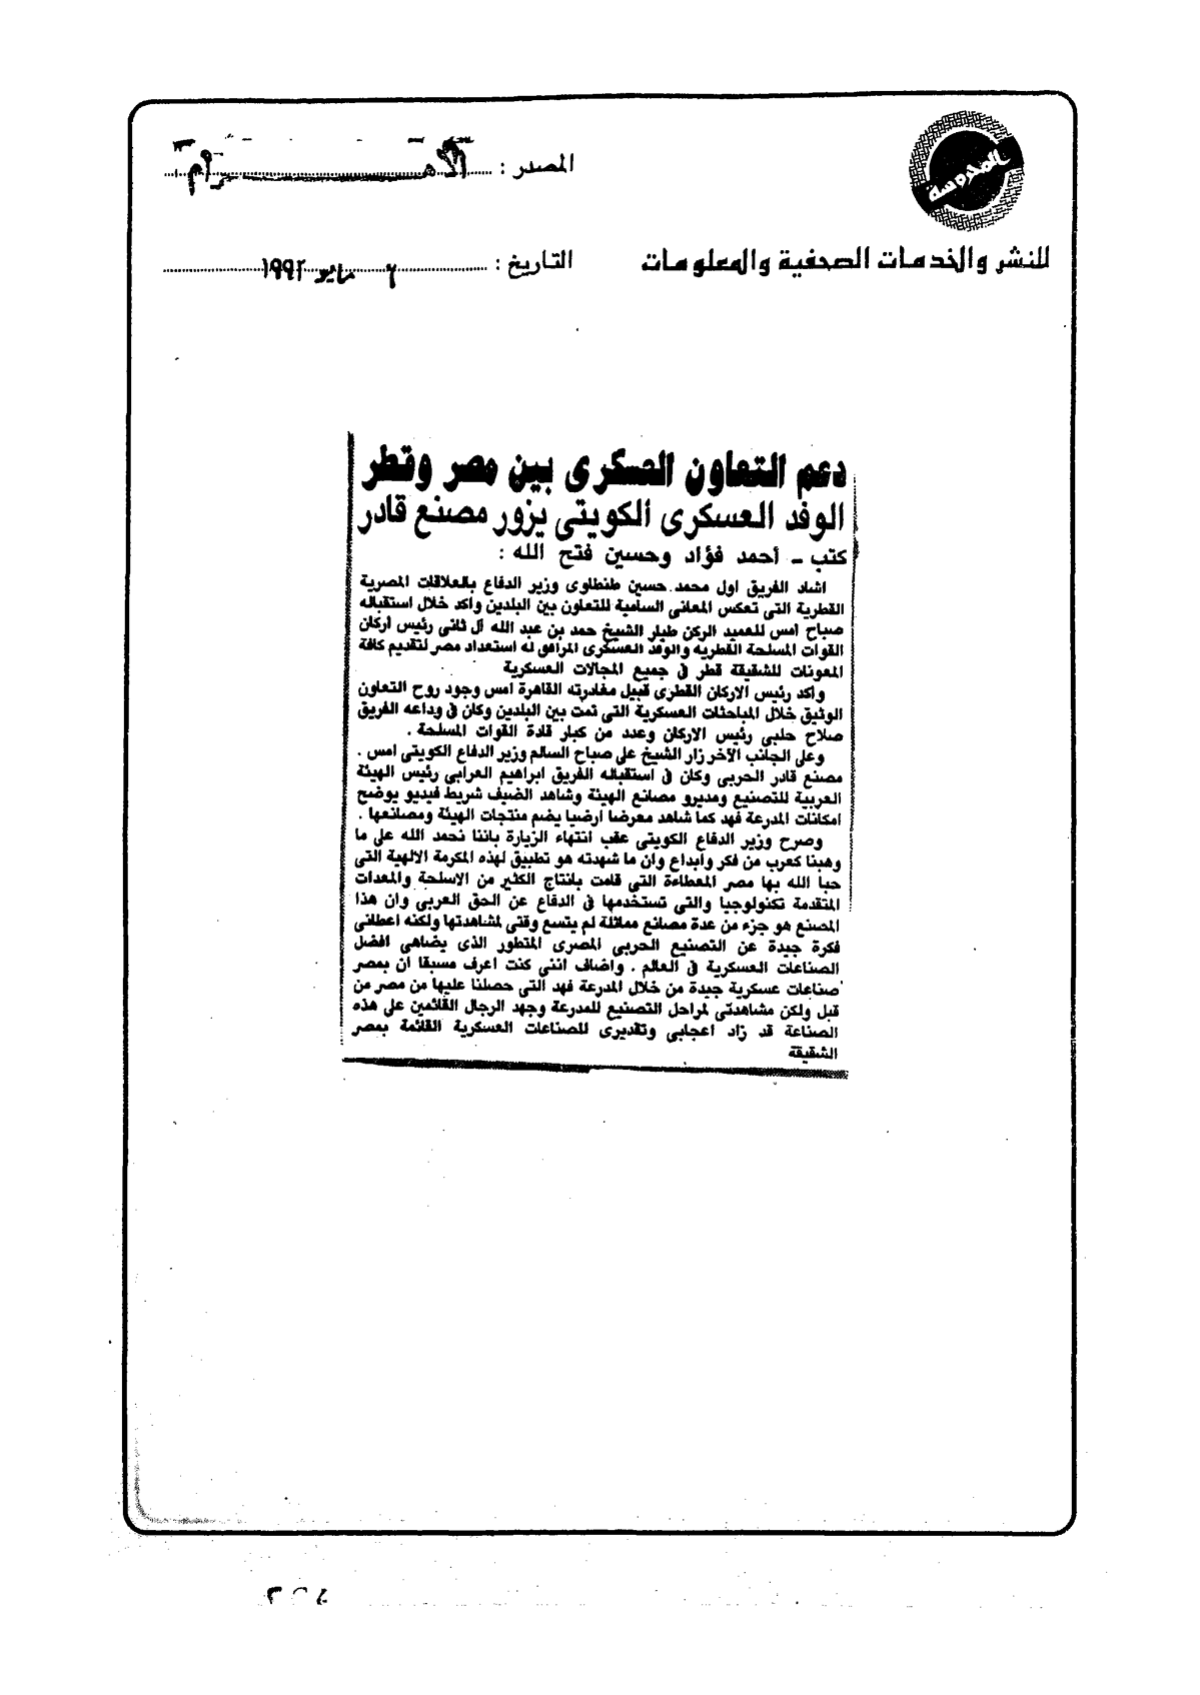 المحروسة
المصدر : الأهـــرام
للنشر والخدمات الصحفية والمعلومات
التاريخ : ٦ مايو ١٩٩٢
دعم التعاون العسكرى بين مصر وقطر
الوفد العسكرى الكويتى يزور مصنع قادر
كتب ــ أحمد فؤاد وحسين فتح الله :
اشاد الفريق اول محمد حسين طنطاوى وزير الدفاع بالعلاقات المصرية
القطرية التى تعكس المعانى السامية للتعاون بين البلدين واكد خلال استقباله
صباح امس للعميد الركن طيار الشيخ حمد بن عبد الله آل ثانى رئيس اركان
القوات المسلحة القطريه والوفد العسكرى المرافق له استعداد مصر لتقديم كافة
المعونات للشقيقة قطر فى جميع المجالات العسكرية
واكد رئيس الاركان القطرى قبيل مغادرته القاهرة امس وجود روح التعاون
الوثيق خلال المباحثات العسكرية التى تمت بين البلدين وكان فى وداعه الفريق
صلاح حلبى رئيس الاركان وعدد من كبار قادة القوات المسلحة .
وعلى الجانب الآخر زار الشيخ على صباح السالم وزير الدفاع الكويتى امس .
مصنع قادر الحربى وكان فى استقباله الفريق ابراهيم العرابى رئيس الهيئة
العربية للتصنيع ومديرو مصانع الهيئة وشاهد الضيف شريط فيديو يوضح
امكانات المدرعة فهد كما شاهد معرضا ارضيا يضم منتجات الهيئة ومصانعها .
وصرح وزير الدفاع الكويتى عقب انتهاء الزيارة باننا نحمد الله على ما
وهبنا كعرب من فكر وابداع وان ما شهدته هو تطبيق لهذه المكرمة الالهية التى
حبا الله بها مصر المعطاءة التى قامت بانتاج الكثير من الاسلحة والمعدات
المتقدمة تكنولوجيا والتى تستخدمها فى الدفاع عن الحق العربى وان هذا
المصنع هو جزء من عدة مصانع مماثلة لم يتسع وقتى لمشاهدتها ولكنه اعطانى
فكرة جيدة عن التصنيع الحربى المصرى المتطور الذى يضاهى افضل
الصناعات العسكرية فى العالم . واضاف اننى كنت اعرف مسبقا ان بمصر
صناعات عسكرية جيدة من خلال المدرعة فهد التى حصلنا عليها من مصر من
قبل ولكن مشاهدتى لمراحل التصنيع للمدرعة وجهد الرجال القائمين على هذه
الصناعة قد زاد اعجابى وتقديرى للصناعات العسكرية القائمة بمصر
الشقيقة